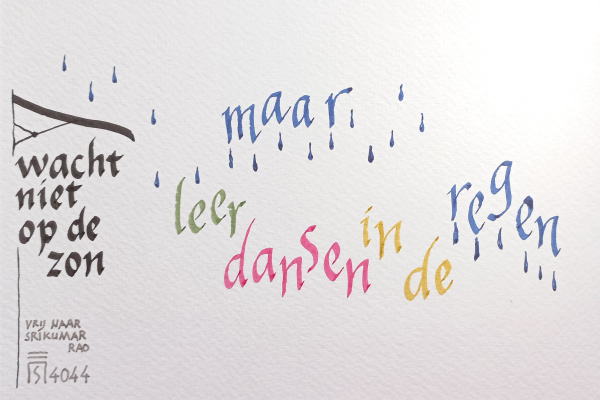 wacht
niet
op de
zon
maar
leer
dansen
in
de
regen
VRIJ NAAR
SRIKUMAR
RAO
S 4044